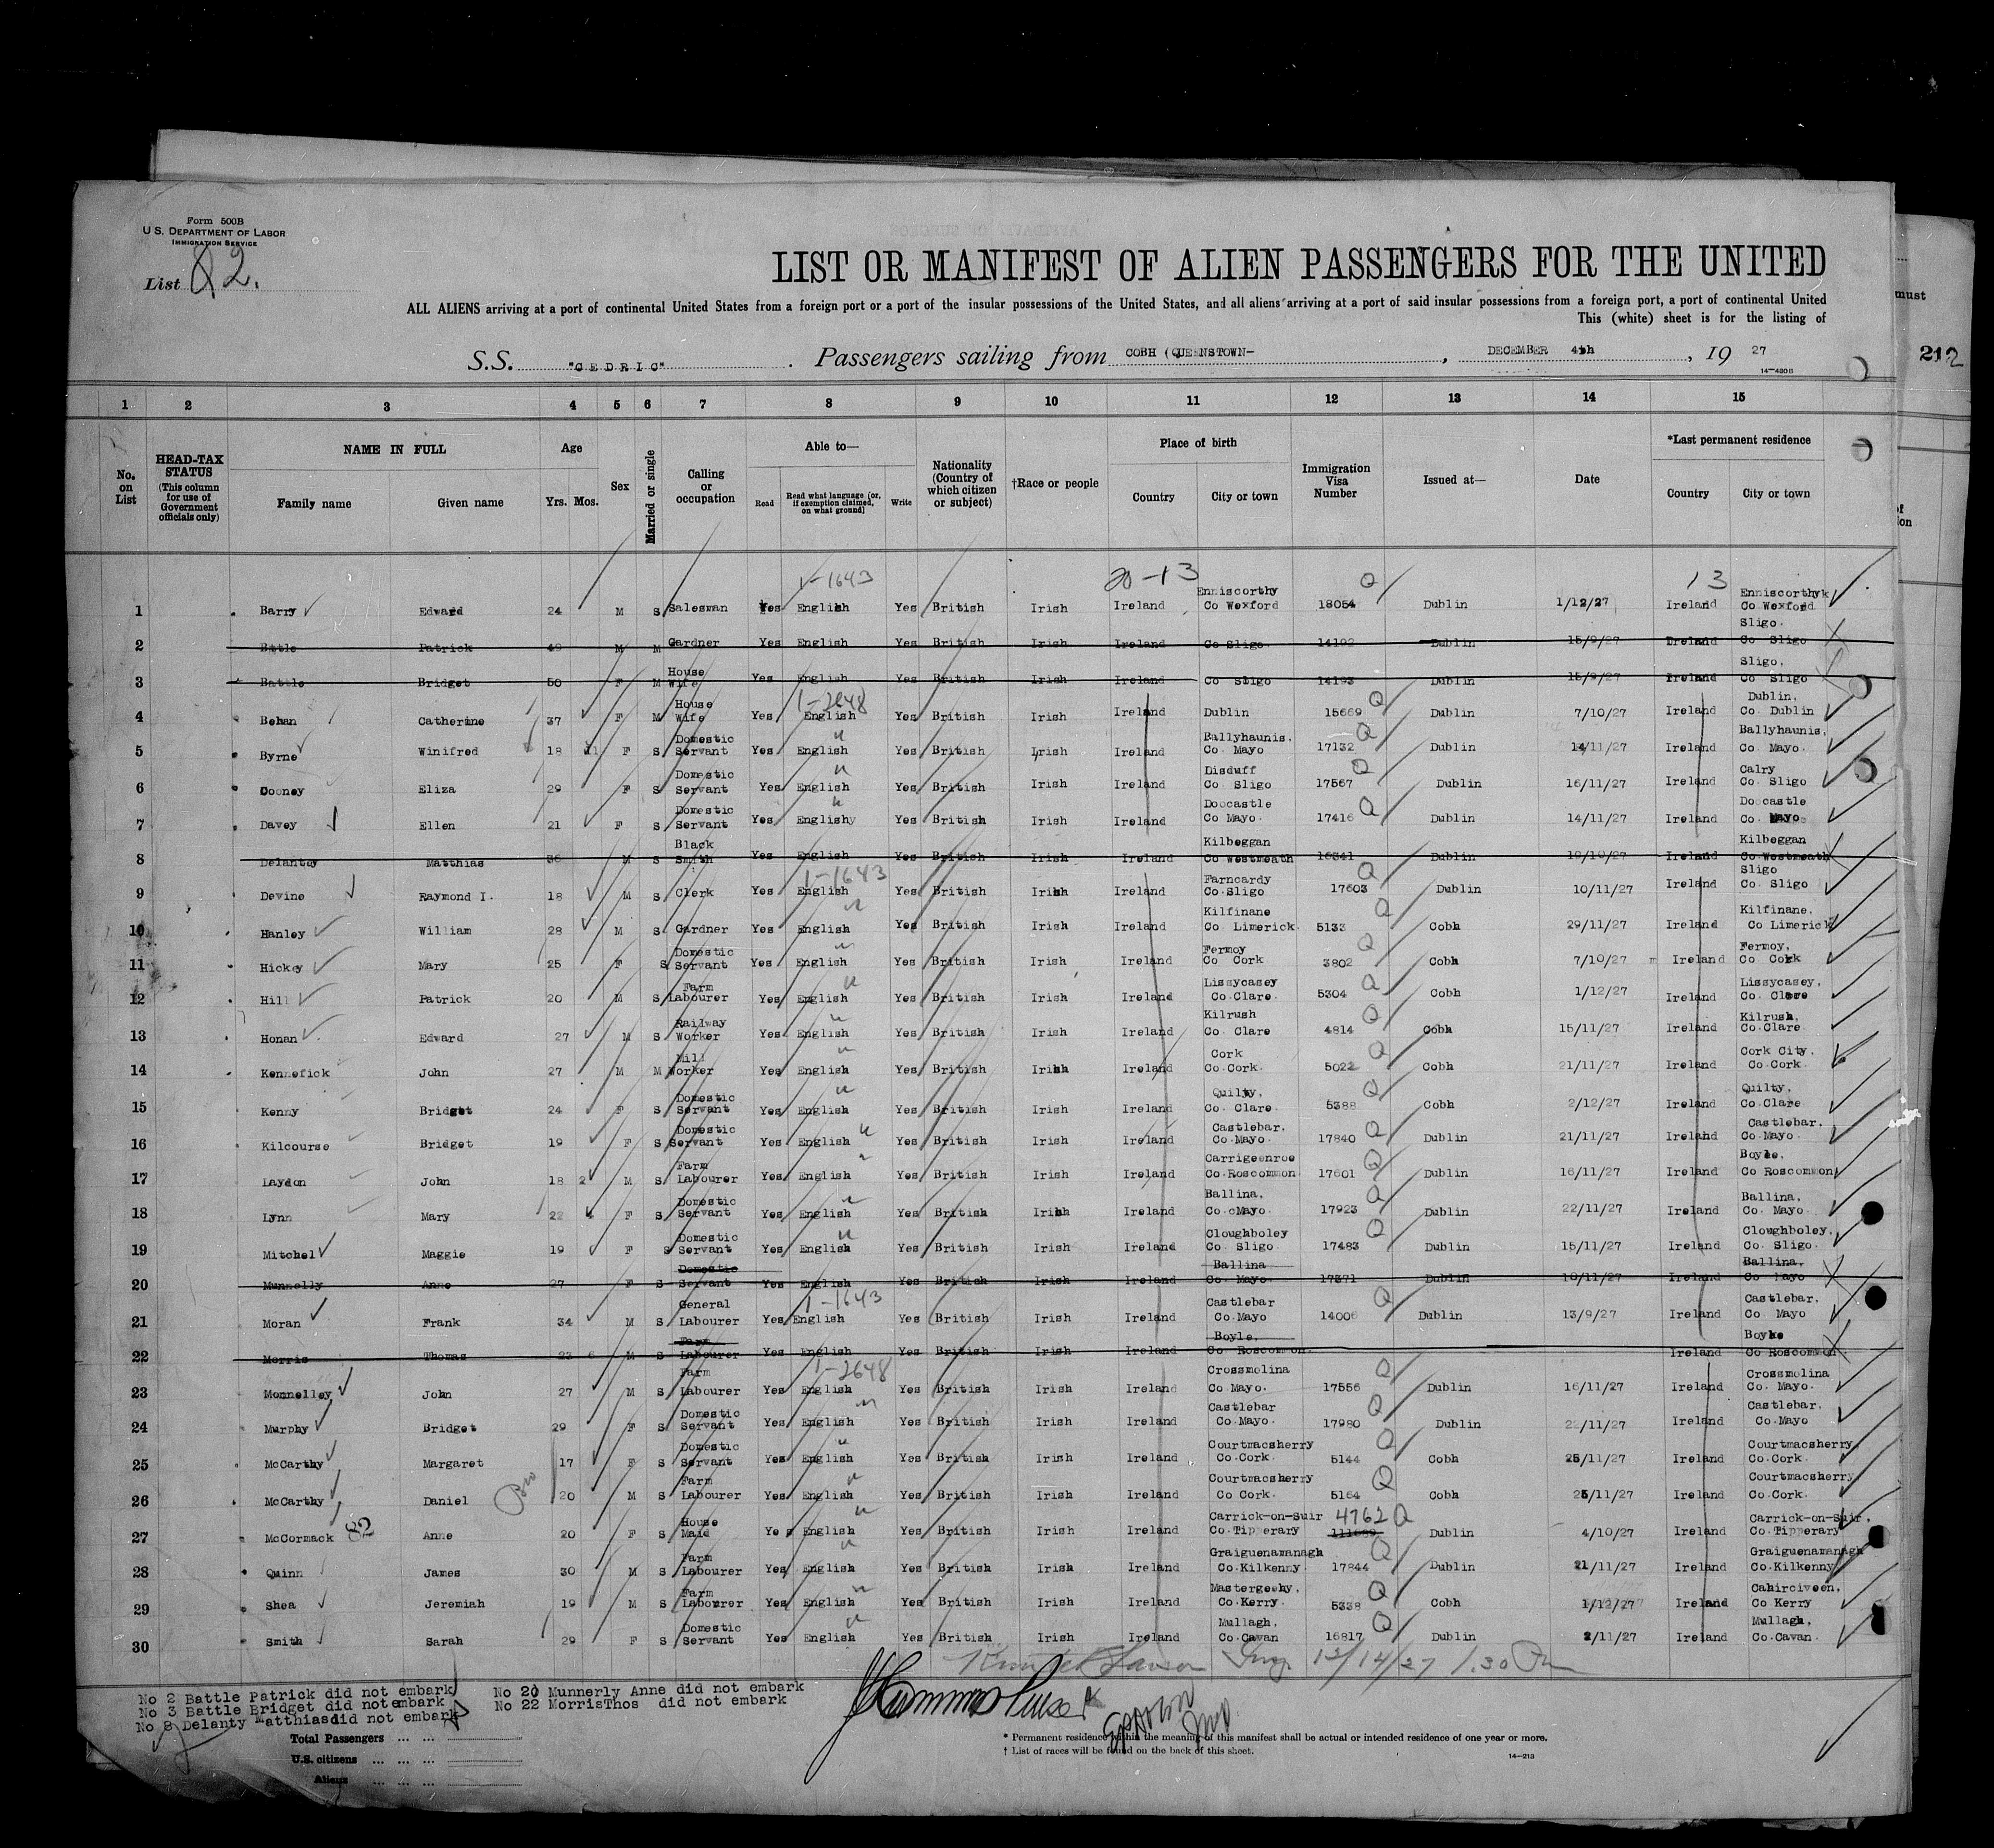 Form 500B
U.S. DEPARTMENT OF LABOR
IMMIGRATION SERVICE
List 82.
LIST OR MANIFEST OF ALIEN PASSENGERS FOR THE UNITED
ALL ALIENS arriving at a port of continental United States from a foreign port or a port of the insular possessions of the United States, and all aliens arriving at a port of said insular possessions from a foreign port, a port of continental United
This (white) sheet is for the listing of
must
S.S. "CEDRIC" . Passengers sailing from COBH (QUEENSTOWN- , DECEMBER 4th , 19 27
14-480B
212
1 2 3 4 5 6 7 8 9 10 11 12 13 14 15
No. on List
HEAD-TAX STATUS (This column for use of Government officials only)
NAME IN FULL
Family name Given name
Age
Yrs. Mos.
Sex
Married or single
Calling or occupation
Able to—
Read Read what language (or, if exemption claimed, on what ground) Write
Nationality (Country of which citizen or subject)
†Race or people
Place of birth
Country City or town
Immigration Visa Number
Issued at—
Date
*Last permanent residence
Country City or town
1-1643 20-13 Q 13
1 Barry Edward 24 M S Salesman Yes English Yes British Irish Ireland Enniscorthy Co Wexford 18054 Dublin 1/12/27 Ireland Enniscorthyk Co Wexford
2 Battle Patrick 49 M M Gardner Yes English Yes British Irish Ireland Co Sligo 14192 Dublin 15/9/27 Ireland Sligo. Co Sligo
3 Battle Bridget 50 F M House Wife Yes English Yes British Irish Ireland Co Sligo 14193 Dublin 15/9/27 Ireland Sligo, Co Sligo
1-2648
4 Behan Catherine 37 F M House Wife Yes English Yes British Irish Ireland Dublin 15669 Q Dublin 7/10/27 Ireland Dublin, Co Dublin
5 Byrne Winifred 18 11 F S Domestic Servant Yes English Yes British Irish Ireland Ballyhaunis, Co Mayo 17132 Q Dublin 14/11/27 Ireland Ballyhaunis, Co Mayo.
6 Cooney Eliza 29 F S Domestic Servant Yes English Yes British Irish Ireland Disduff Co Sligo 17567 Q Dublin 16/11/27 Ireland Calry Co Sligo
7 Davey Ellen 21 F S Domestic Servant Yes Englishy Yes British Irish Ireland Doocastle Co Mayo. 17416 Q Dublin 14/11/27 Ireland Doocastle Co Mayo
8 Delantuy Matthias 36 M S Black Smith Yes English Yes British Irish Ireland Kilbeggan Co Westmeath 16341 Dublin 19/10/27 Ireland Kilbeggan Co Westmeath
1-1643
9 Devine Raymond I. 18 M S Clerk Yes English Yes British Irish Ireland Farncardy Co.Sligo 17603 Q Dublin 10/11/27 Ireland Sligo Co Sligo
10 Hanley William 28 M S Gardner Yes English Yes British Irish Ireland Kilfinane Co Limerick 5133 Q Cobh 29/11/27 Ireland Kilfinane. Co Limerick
11 Hickey Mary 25 F S Domestic Servant Yes English Yes British Irish Ireland Fermoy Co Cork 3802 Q Cobh 7/10/27 Ireland Fermoy, Co Cork
12 Hill Patrick 20 M S Farm Labourer Yes English Yes British Irish Ireland Lissycasey Co.Clare. 5304 Q Cobh 1/12/27 Ireland Lissycasey, Co. Clare
13 Honan Edward 27 M S Railway Worker Yes English Yes British Irish Ireland Kilrush Co. Clare 4814 Q Cobh 15/11/27 Ireland Kilrush, Co.Clare.
14 Kennefick John 27 M M Mill Worker Yes English Yes British Irish Ireland Cork Co.Cork. 5022 Q Cobh 21/11/27 Ireland Cork City. Co.Cork.
15 Kenny Bridget 24 F S Domestic Servant Yes English Yes British Irish Ireland Quilty, Co. Clare. 5388 Q Cobh 2/12/27 Ireland Quilty. Co.Clare.
16 Kilcourse Bridget 19 F S Domestic Servant Yes English Yes British Irish Ireland Castlebar. Co.Mayo. 17840 Q Dublin 21/11/27 Ireland Castlebar. Co.Mayo.
17 Laydon John 18 2 M S Farm Labourer Yes English Yes British Irish Ireland Carrigeenroe Co.Roscommon 17601 Q Dublin 16/11/27 Ireland Boyle. Co Roscommon
18 Lynn Mary 22 F S Domestic Servant Yes English Yes British Irish Ireland Ballina. Co.cMayo. 17923 Q Dublin 22/11/27 Ireland Ballina. Co. Mayo
19 Mitchel Maggie 19 F S Domestic Servant Yes English Yes British Irish Ireland Cloughboley Co. Sligo. 17483 Q Dublin 15/11/27 Ireland Cloughboley. Co. Sligo.
20 Munnelly Anne 27 F S Domestic Servant Yes English Yes British Irish Ireland Ballina Co. Mayo. 17371 Dublin 10/11/27 Ireland Ballina. Co Mayo
1-1643
21 Moran Frank 34 M S General Labourer Yes English Yes British Irish Ireland Castlebar Co.Mayo 14006 Q Dublin 13/9/27 Ireland Castlebar. Co Mayo
22 Morris Thomas 23 6 M S Farm Labourer Yes English Yes British Irish Ireland Boyle. Co Roscommon. Ireland Boyle Co Roscommon
1-2648
23 Monnelley John 27 M S Farm Labourer Yes English Yes British Irish Ireland Crossmolina Co Mayo. 17556 Q Dublin 16/11/27 Ireland Crossmolina Co. Mayo.
24 Murphy Bridget 29 F S Domestic Servant Yes English Yes British Irish Ireland Castlebar Co.Mayo. 17980 Q Dublin 22/11/27 Ireland Castlebar. Co.Mayo
25 McCarthy Margaret 17 F S Domestic Servant Yes English Yes British Irish Ireland Courtmacsherry Co.Cork. 5144 Q Cobh 25/11/27 Ireland Courtmacsherry Co.Cork.
26 McCarthy Daniel 20 M S Farm Labourer Yes English Yes British Irish Ireland Courtmacsherry Co Cork. 5164 Q Cobh 25/11/27 Ireland Courtmacsherry Co.Cork.
27 McCormack 82 Anne 20 F S House Maid Yes English Yes British Irish Ireland Carrick-on-Suir Co.Tipperary 4762 Q Dublin 4/10/27 Ireland Carrick-on-Suir, Co.Tipperary
28 Quinn James 30 M S Farm Labourer Yes English Yes British Irish Ireland Graiguenamanagh Co.Kilkenny. 17844 Q Dublin 21/11/27 Ireland Graiguenamanagh Co.Kilkenny
29 Shea Jeremiah 19 M S Farm Labourer Yes English Yes British Irish Ireland Mastergeehy, Co.Kerry. 5338 Q Cobh 1/12/27 Ireland Cahirciveen, Co Kerry
30 Smith Sarah 29 F S Domestic Servant Yes English Yes British Irish Ireland Mullagh, Co.Cavan 16817 Q Dublin 2/11/27 Ireland Mullagh, Co.Cavan.
12/14/27 1.30 Pm
No 2 Battle Patrick did not embark
No 3 Battle Bridget did not embark
No 8 Delanty Matthias did not embark
No 20 Munnerly Anne did not embark
No 22 MorrisThos did not embark
Total Passengers ... ...
U.S. citizens ... ... ...
Aliens ... ... ...
* Permanent residence within the meaning of this manifest shall be actual or intended residence of one year or more.
† List of races will be found on the back of this sheet.
14-213